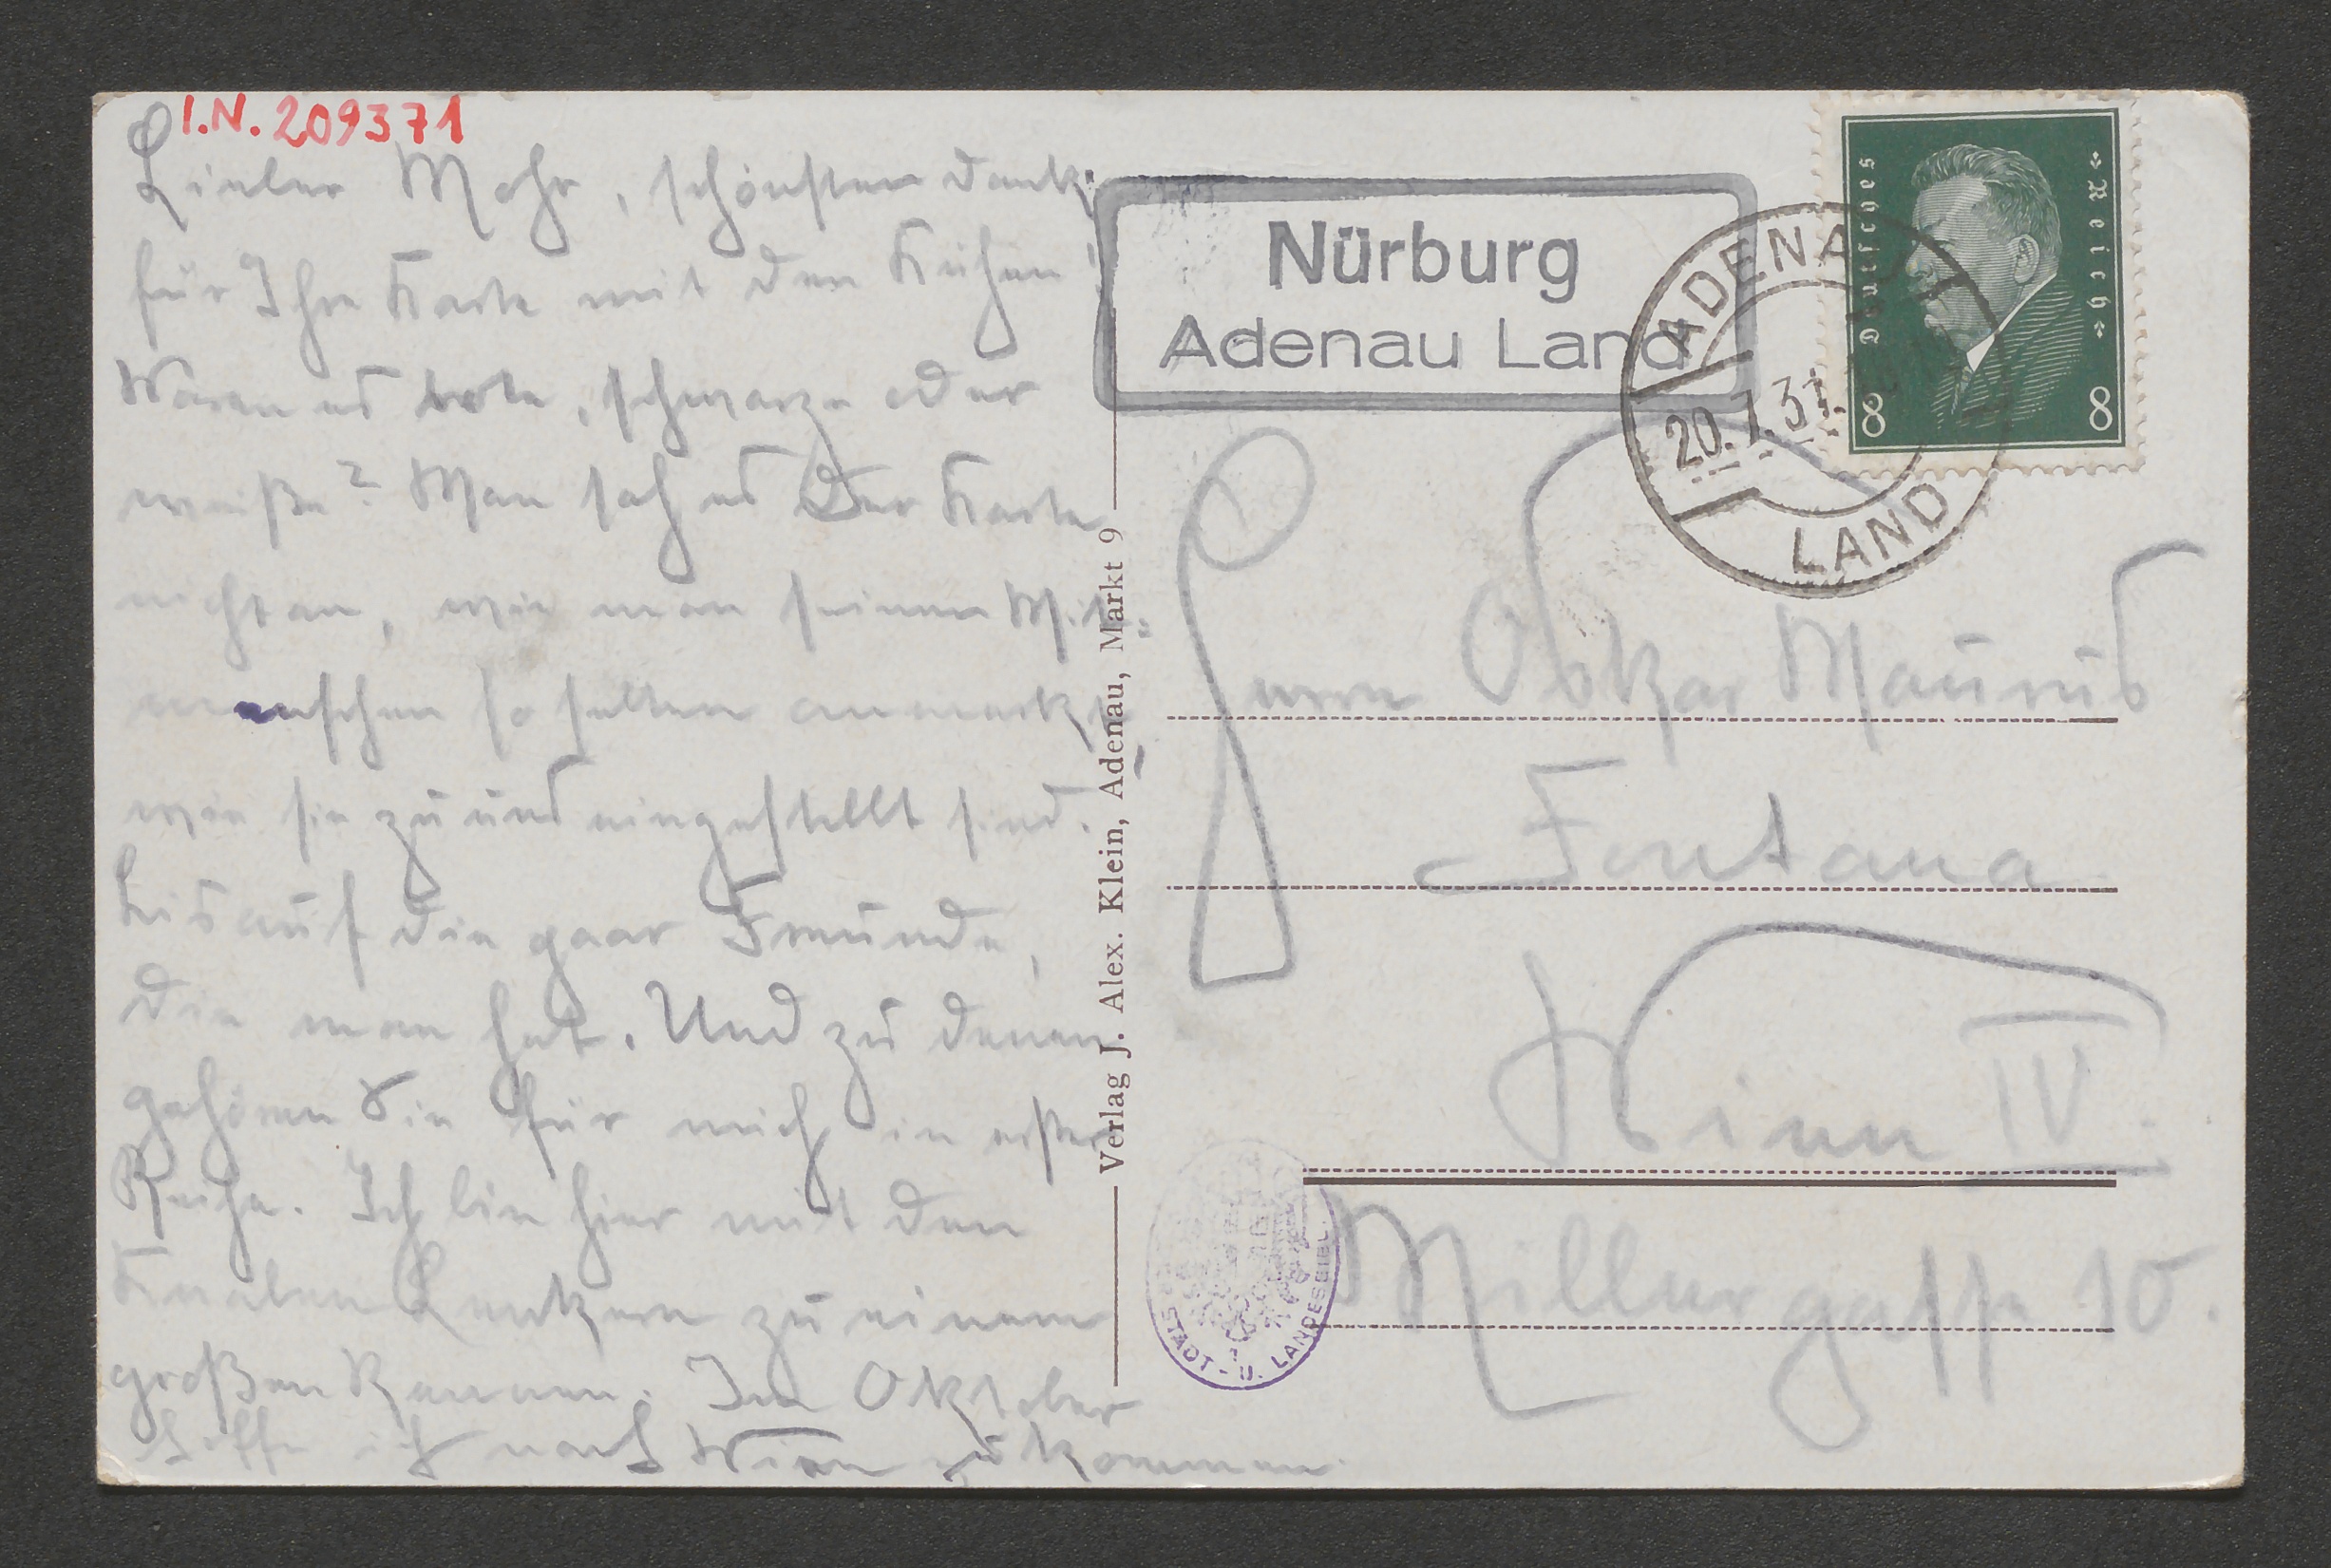 I.N. 209371
Lieber Mohr, schönsten Dank
für Ihre Karte mit den Kühen!
Waren es rote, schwarze oder
weiße? Man sah es der Karte
nicht an, wie man seinen Mit=
menschen so selten anmerkt,
wie sie zu uns eingestellt sind.
Bis auf die paar Freunde,
die man hat. Und zu denen
gehören Sie für mich in erster
Reihe. Ich bin hier mit den
Knaben Lenkern zu einem
großen Rennen. Im Oktober
hoffe ich nach Wien zu kommen.
Verlag J. Alex. Klein, Adenau, Markt 9
Nürburg
Adenau Land
Deutsches Reich
8 8
ADENAU
20.7.31
LAND
Herrn Oskar Maurus
Fontana
Wien IV.
Millergasse 10.
STADT - U. LANDESBIBL.